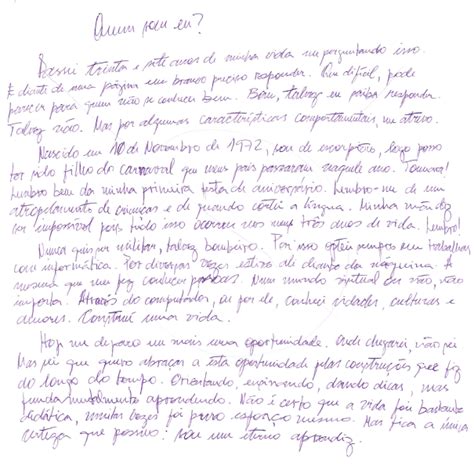 Quem sou eu?
Passei trinta e sete anos de minha vida me perguntando isso.
E diante de uma página em branco preciso responder. Que difícil, pode
parecer para quem não se conhece bem. Bem, talvez eu saiba responder.
Talvez não. Mas por algumas características comportamentais me ativo.
Nascido em 10 de Novembro de 1972, sou de escorpião, logo posso
ter sido filho do carnaval que meus pais passaram naquele ano. Tomara!
Lembro bem da minha primeira festa de aniversário. Lembro-me de um
atropelamento de crianças e de quando cortei a língua. Minha mãe diz
ser impossível pois tudo isso ocorreu nos meus três anos de vida. Lembro!
Nunca quis ser militar, talvez bombeiro. Por isso optei sempre em trabalhar
com informática. Por diversas vezes estive ali diante da máquina. A
mesma que me fez conhecer pessoas. Num mundo virtual ou não, não
importa. Através do computador, ou por ele, conheci cidades, culturas e
amores. Construí uma vida.
Hoje me deparo em mais uma oportunidade. Onde chegarei, não sei
Mas sei que quero abraçar a esta oportunidade pelas construções que fiz
do longo do tempo. Orientando, ensinando, dando dicas, mas
fundamentalmente aprendendo. Não é certo que a vida foi bastante
didática, muitas vezes foi puro esforço mesmo. Mas fica a única
certeza que possuo: sou um eterno aprendiz.